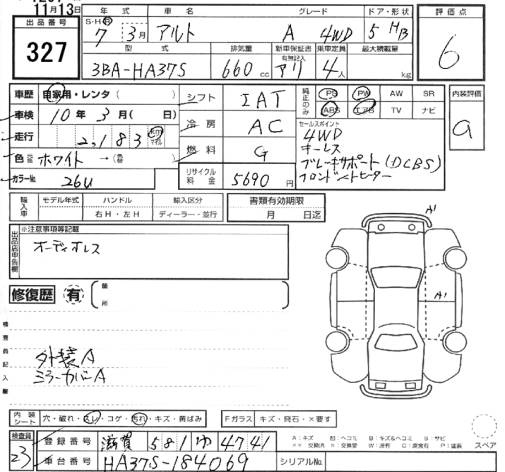 11月13日
出品番号
327
S・H・R
年式
車名
グレード
ドア・形状
7 3月 アルト A 4WD 5 HB
型式
排気量
新車保証書
有無記入
乗車定員
最大積載量
3BA-HA37S 660cc アリ 4人 kg
評価点
6
車歴 自家用・レンタ( )
車検 10年3月( 日)
走行 2,183 km マイル
色 ホワイト →( )
カラーNo. 26U
シフト IAT
冷房 AC
燃料 G
リサイクル料金 5690円
純正のみ
PS PW AW SR
ABS エアB TV ナビ
セールスポイント
4WD
キーレス
ブレーキサポート(DCBS)
フロントシートヒーター
内装評価
a
輸入車
モデル年式
ハンドル
右H・左H
輸入区分
ディーラー・並行
書類有効期限
月 日迄
出品店申告欄
※注意事項等記載
オーディオレス
修復歴 有
箇所
検査員記入欄
外装A
ミラーカバーA
A1
A1
内装シート
穴・破れ・スレ・コゲ・汚れ・キズ・黄ばみ
Fガラス
キズ・飛石・×要す
検査員
23
登録番号 滋賀 581 ゆ 4741
車台番号 HA37S-184069
シリアルNo.
A:キズ B:ヘコミ B:キズ&ヘコミ S:サビ
スペア